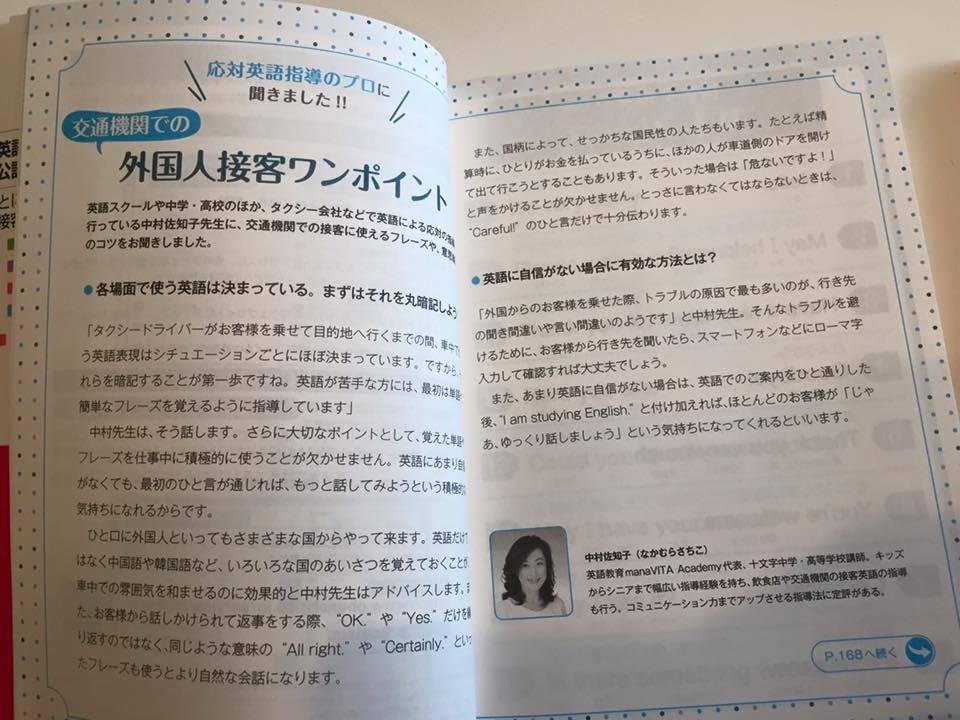 応対英語指導のプロに
聞きました!!
交通機関での
外国人接客ワンポイント
英語スクールや中学・高校のほか、タクシー会社などで英語による応対の指
行っている中村佐知子先生に、交通機関での接客に使えるフレーズや、意思
のコツをお聞きしました。
●各場面で使う英語は決まっている。まずはそれを丸暗記しよう
「タクシードライバーがお客様を乗せて目的地へ行くまでの間、車中で
う英語表現はシチュエーションごとにほぼ決まっています。ですから、
れらを暗記することが第一歩ですね。英語が苦手な方には、最初は単語
簡単なフレーズを覚えるように指導しています」
中村先生は、そう話します。さらに大切なポイントとして、覚えた単語
フレーズを仕事中に積極的に使うことが欠かせません。英語にあまり自信
がなくても、最初のひと言が通じれば、もっと話してみようという積極的
気持ちになれるからです。
ひと口に外国人といってもさまざまな国からやって来ます。英語だけで
はなく中国語や韓国語など、いろいろな国のあいさつを覚えておくことが、
車中での雰囲気を和ませるのに効果的と中村先生はアドバイスします。ま
た、お客様から話しかけられて返事をする際、“OK.” や “Yes.” だけを繰
り返すのではなく、同じような意味の “All right.” や “Certainly.” といっ
たフレーズも使うとより自然な会話になります。
また、国柄によって、せっかちな国民性の人たちもいます。たとえば精
算時に、ひとりがお金を払っているうちに、ほかの人が車道側のドアを開け
て出て行こうとすることもあります。そういった場合は「危ないですよ!」
と声をかけることが欠かせません。とっさに言わなくてはならないときは、
“Careful!” のひと言だけで十分伝わります。
●英語に自信がない場合に有効な方法とは?
「外国からのお客様を乗せた際、トラブルの原因で最も多いのが、行き先
の聞き間違いや言い間違いのようです」と中村先生。そんなトラブルを避
けるために、お客様から行き先を聞いたら、スマートフォンなどにローマ字
入力して確認すれば大丈夫でしょう。
また、あまり英語に自信がない場合は、英語でのご案内をひと通りした
後、“I am studying English.” と付け加えれば、ほとんどのお客様が「じゃ
あ、ゆっくり話しましょう」という気持ちになってくれるといいます。
中村佐知子(なかむらさちこ)
英語教育manaVITA Academy代表、十文字中学・高等学校講師。キッズ
からシニアまで幅広い指導経験を持ち、飲食店や交通機関の接客英語の指導
も行う。コミュニケーション力までアップさせる指導法に定評がある。
P.168へ続く